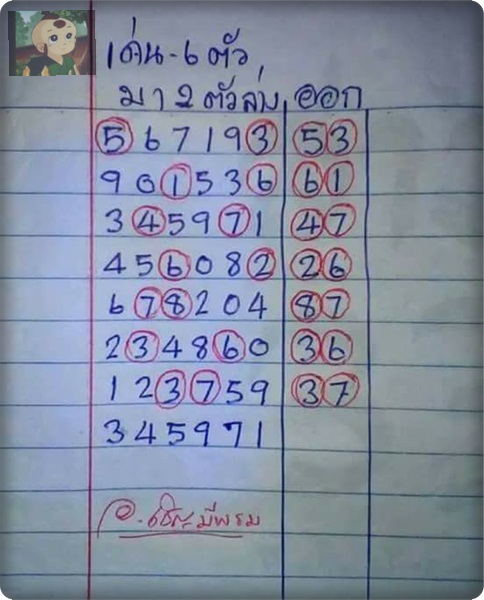 เด่น-6 ตัว
มา 2 ตัวล่าง ออก
5 6 7 1 9 3 53
9 0 1 5 3 6 61
3 4 5 9 7 1 47
4 5 6 0 8 2 26
6 7 8 2 0 4 87
2 3 4 8 6 0 36
1 2 3 7 5 9 37
3 4 5 9 7 1
มีพรม